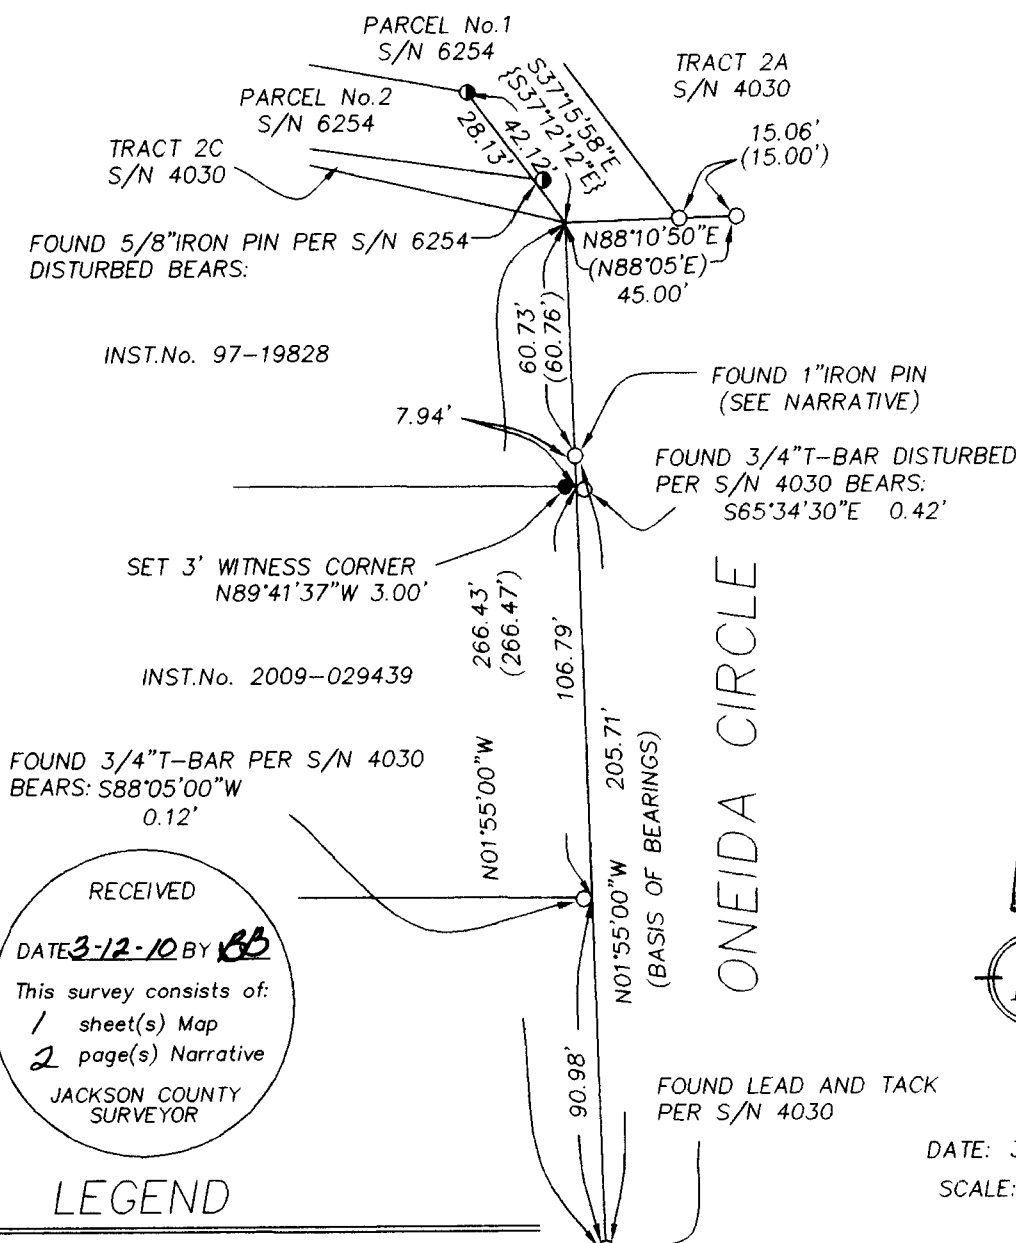 PARCEL No.1
S/N 6254
TRACT 2A
S/N 4030
PARCEL No.2
S/N 6254
S37°15'58"E
{S37°12'12"E}
42.12'
28.13'
15.06'
(15.00')
TRACT 2C
S/N 4030
FOUND 5/8"IRON PIN PER S/N 6254
DISTURBED BEARS:
N88°10'50"E
(N88°05'E)
45.00'
INST.No. 97-19828
60.73'
(60.76')
FOUND 1"IRON PIN
(SEE NARRATIVE)
7.94'
FOUND 3/4"T-BAR DISTURBED
PER S/N 4030 BEARS:
S65°34'30"E 0.42'
SET 3' WITNESS CORNER
N89°41'37"W 3.00'
266.43'
(266.47')
106.79'
INST.No. 2009-029439
ONEIDA CIRCLE
FOUND 3/4"T-BAR PER S/N 4030
BEARS: S88°05'00"W
0.12'
N01°55'00"W
205.71'
N01°55'00"W
(BASIS OF BEARINGS)
RECEIVED
DATE 3-12-10 BY BB
This survey consists of:
1 sheet(s) Map
2 page(s) Narrative
JACKSON COUNTY
SURVEYOR
90.98'
FOUND LEAD AND TACK
PER S/N 4030
DATE: 3
SCALE:
LEGEND